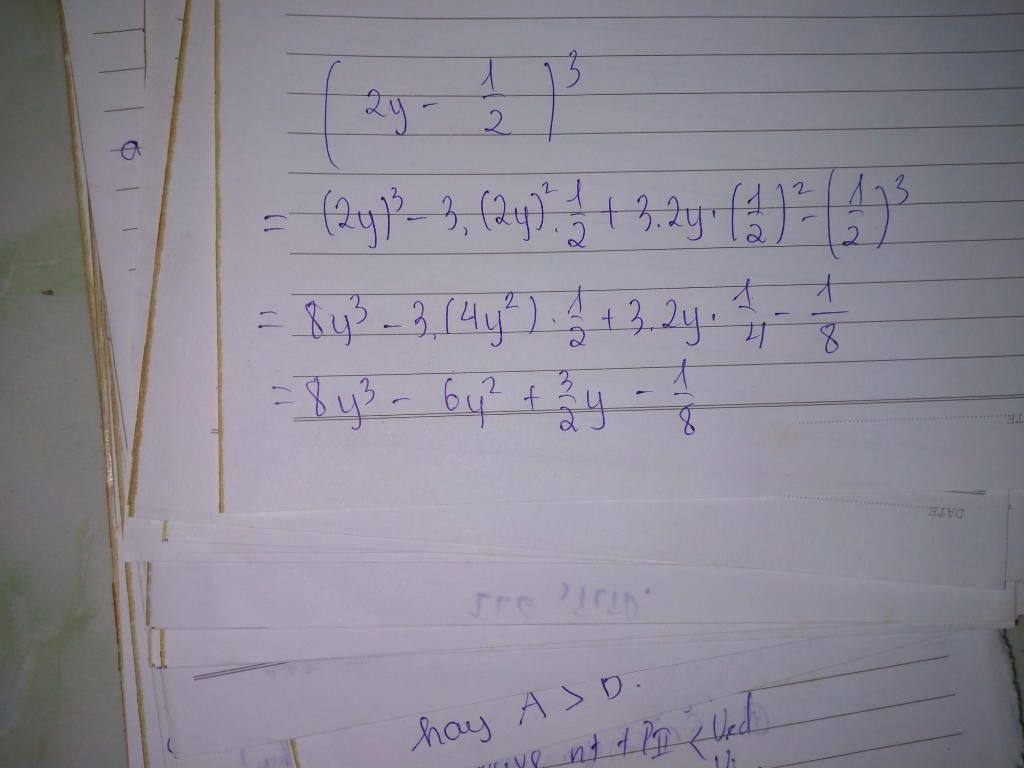 (2y - 1/2)³
= (2y)³ - 3.(2y)².1/2 + 3.2y.(1/2)² - (1/2)³
= 8y³ - 3.(4y²).1/2 + 3.2y.1/4 - 1/8
= 8y³ - 6y² + 3/2y - 1/8
DATE
hay A > 0.